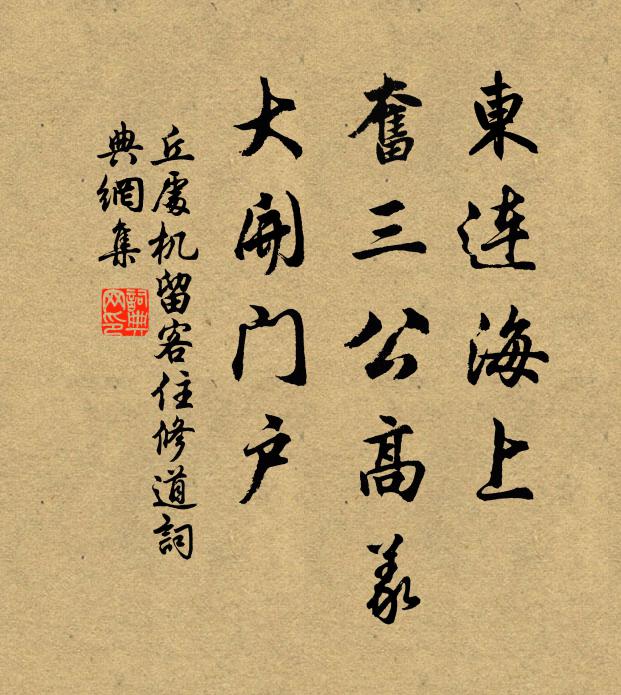 東连海上
奮三公高義
大開门户
丘處机留客住修道詞
典網集
詞典
网印